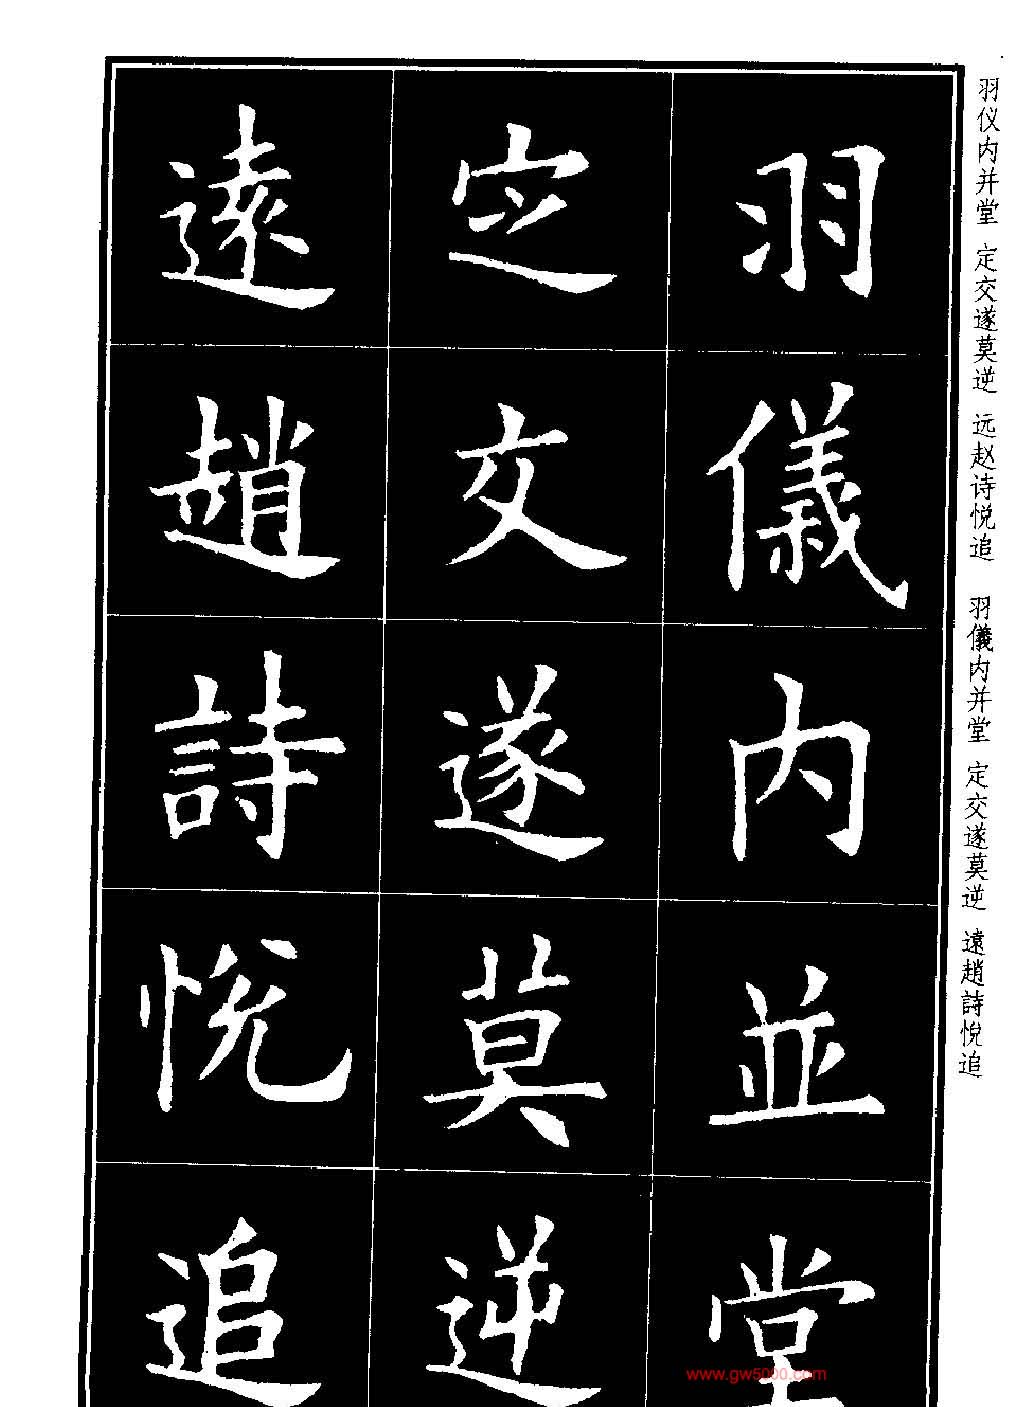 羽儀内並堂
定交遂莫逆
遠趙詩悅追
羽仪内并堂 定交遂莫逆 远赵诗悦追 羽儀内并堂 定交遂莫逆 遠趙詩悅追
www.gw5000.com